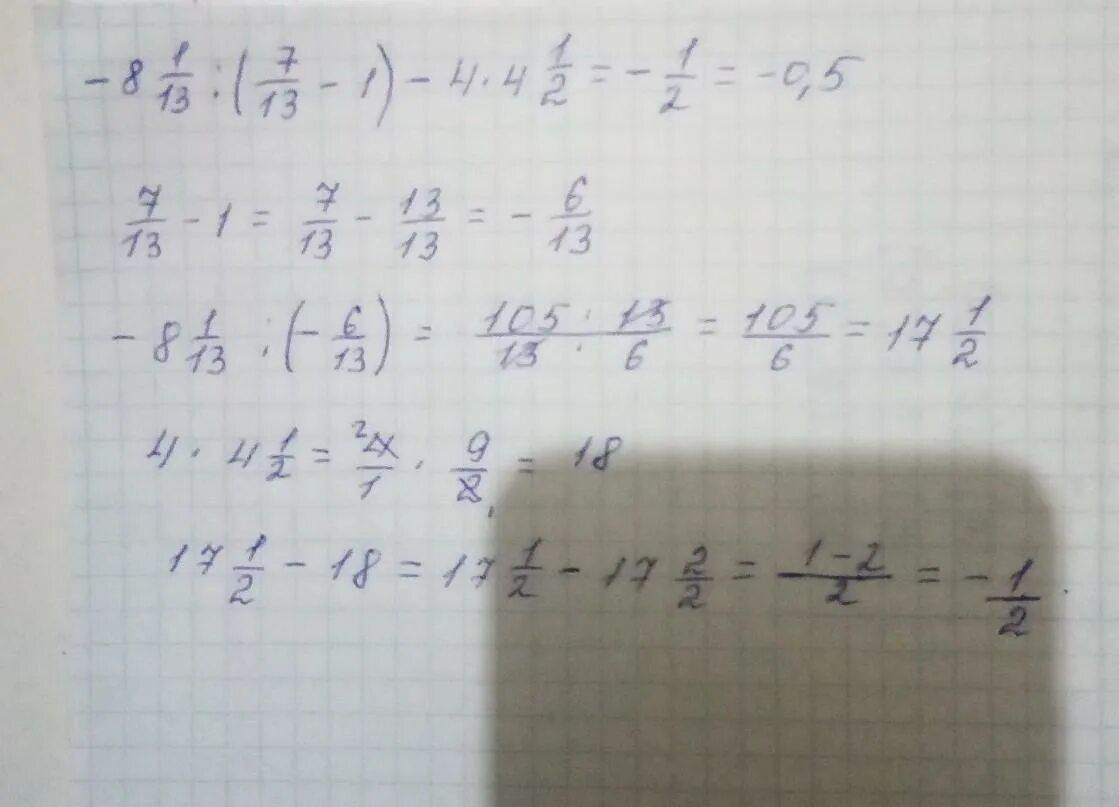 -8 1/13 : (7/13 - 1) - 4 · 4 1/2 = - 1/2 = -0,5
7/13 - 1 = 7/13 - 13/13 = - 6/13
-8 1/13 : (- 6/13) = 105 · 13/13 · 6 = 105/6 = 17 1/2
4 · 4 1/2 = 2 4/1 · 9/2 1 = 18
17 1/2 - 18 = 17 1/2 - 17 2/2 = 1-2/2 = - 1/2